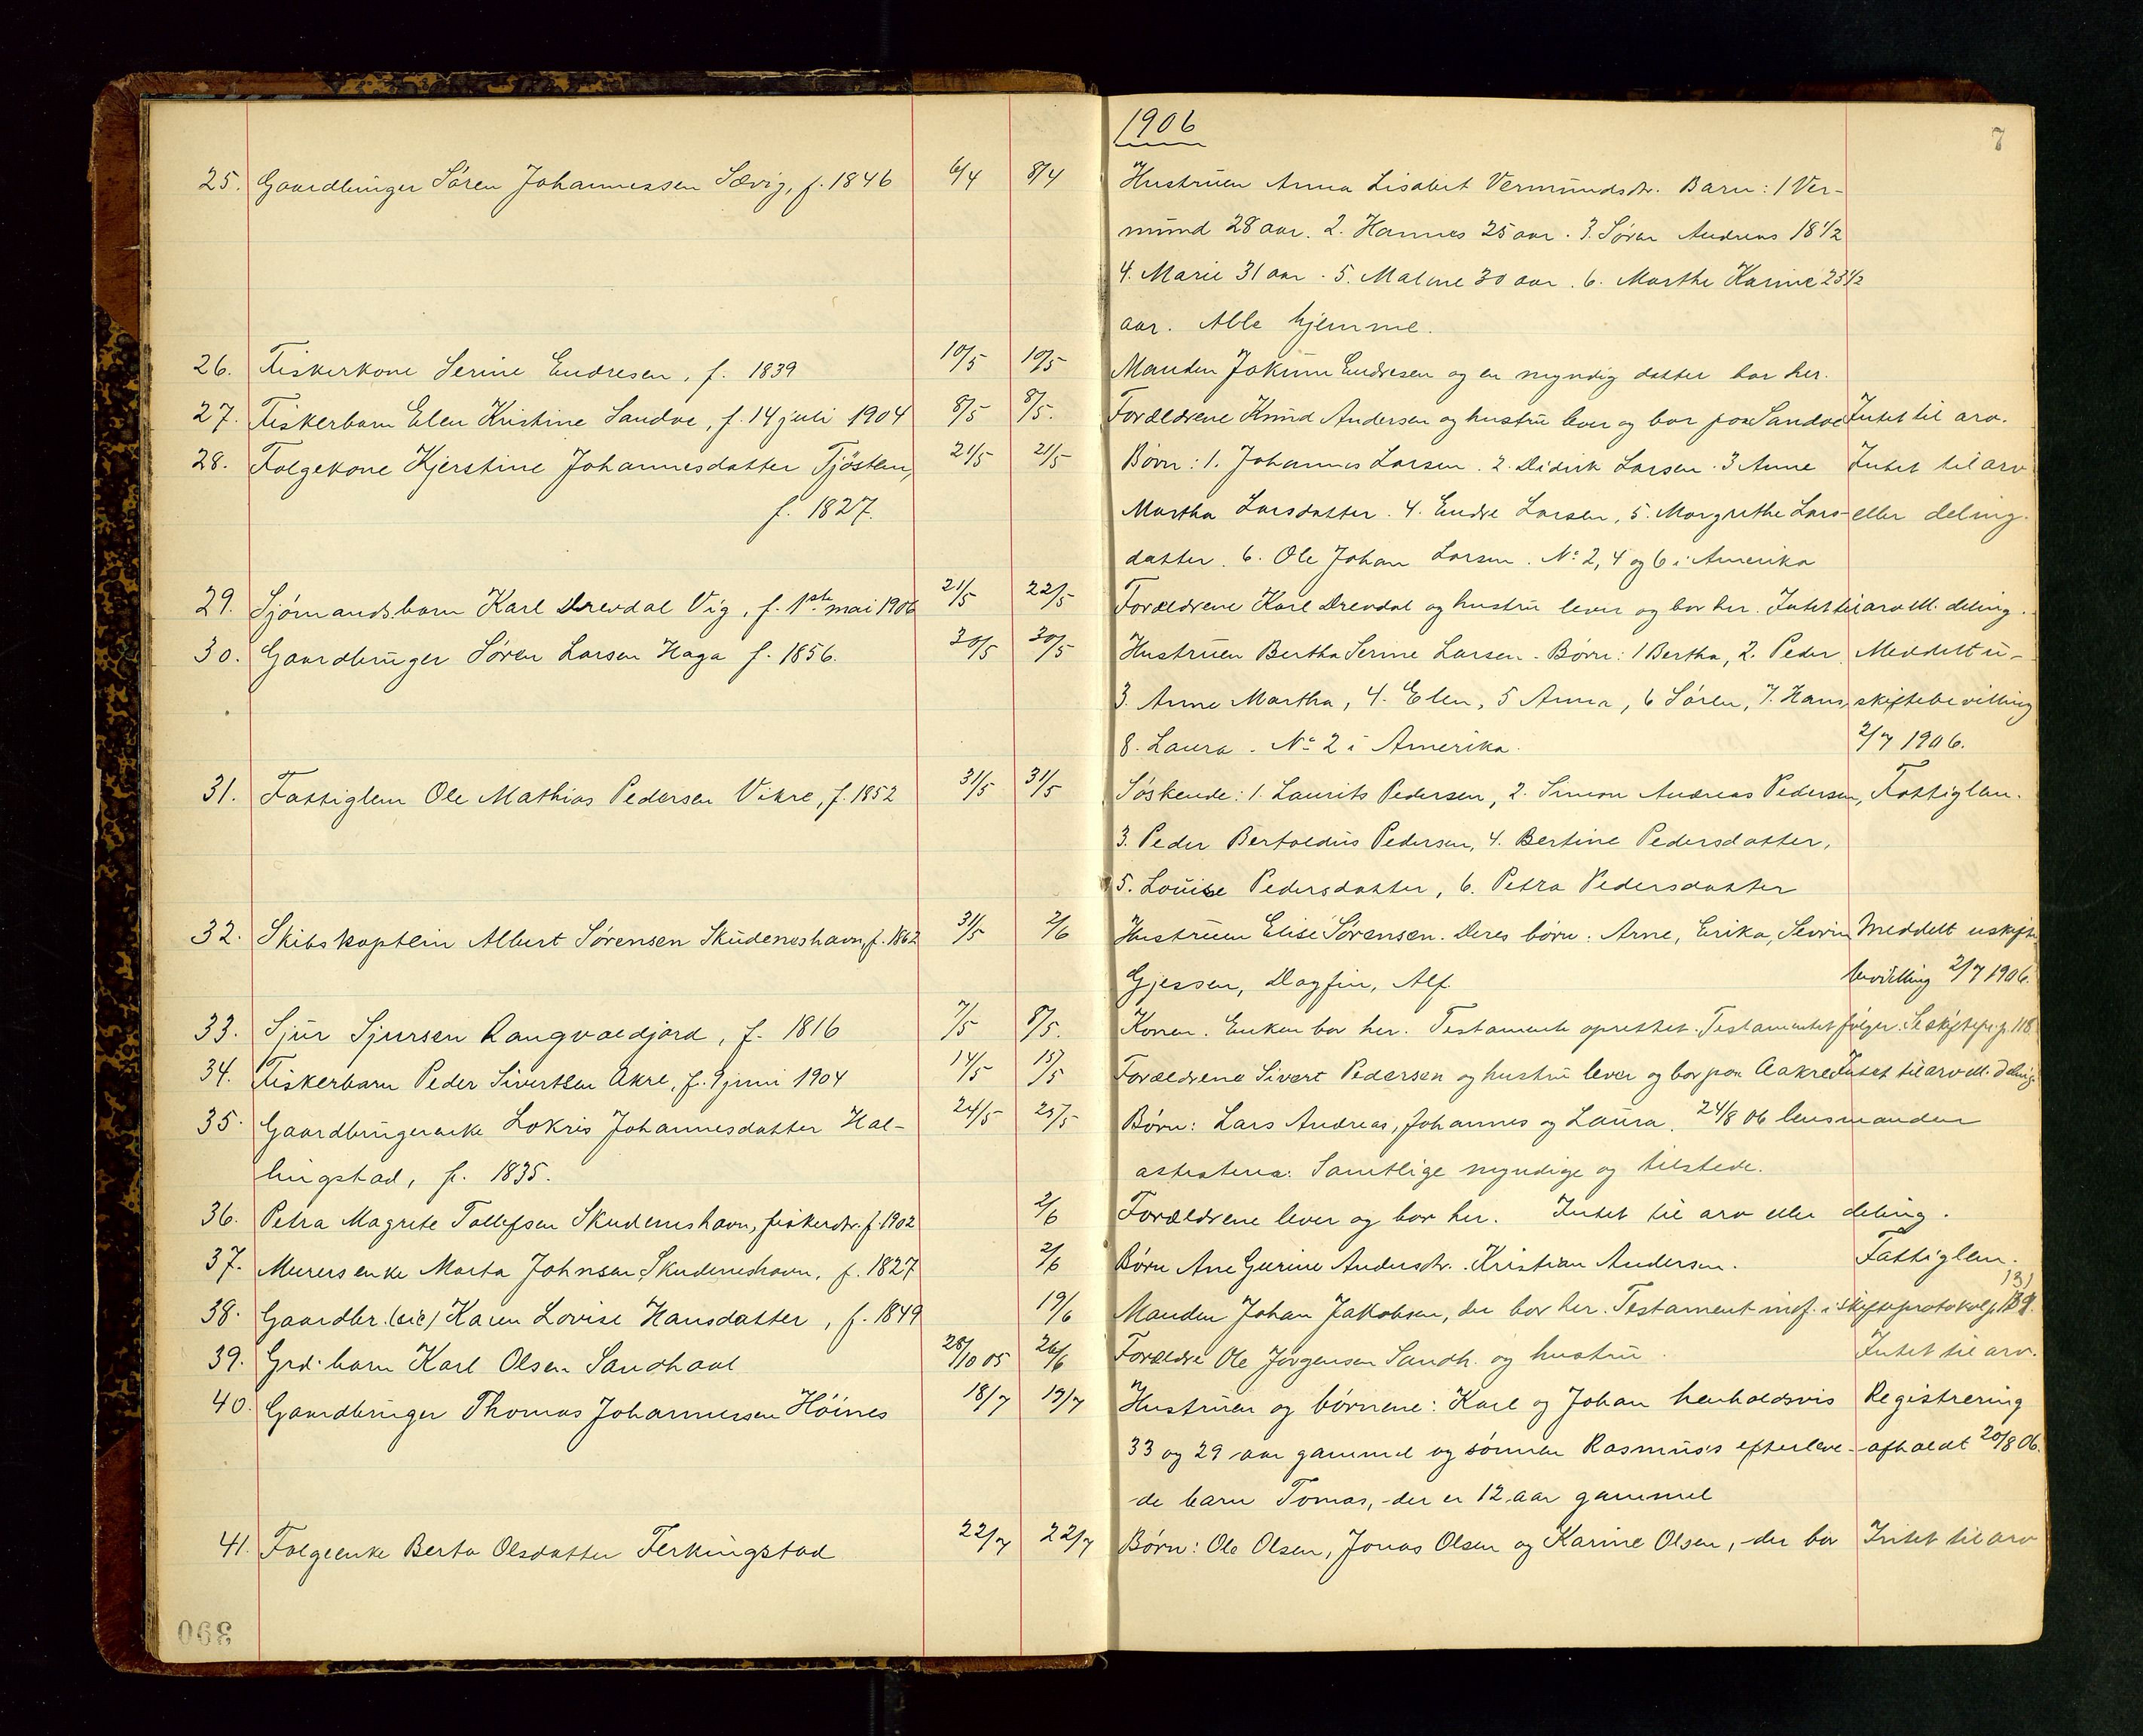 1906
7
25. Gaardbruger Søren Johannessen Sævig, f. 1846 6/4 8/4 Hustruen Anna Lisabet Vermundsdtr. Barn: 1 Ver-
mund 28 aar. 2. Hannes 25 aar. 3. Søren Andreas 18 1/2
4. Marie 31 aar. 5. Malene 30 aar. 6. Marthe Karine 23 1/2
aar. Alle hjemme.
26. Fiskerkone Serine Endresen, f. 1839 10/5 10/5 Manden Jokum Endresen og en myndig datter bor her.
27. Fiskerbarn Elen Kristine Sandve, f. 14 juli 1904 8/5 8/5. Forældrene Knud Andersen og hustru lever og bor paa Sandve Intet til arv.
28. Folgekone Kjerstine Johannesdatter Tjösten, 21/5 21/5 Børn: 1. Johannes Larsen. 2. Didrik Larsen. 3 Anne Intet til arv
f. 1827. Martha Larsdatter. 4. Endre Larsen, 5. Margrethe Lars- eller deling.
datter. 6. Ole Johan Larsen. No 2, 4 og 6 i Amerika
29. Sjömandsbarn Karl Drevdal Vig, f. 1ste mai 1906 21/5 22/5 Forældrene Karl Drevdal og hustru lever og bor her. Intet til arv ell. deling.
30. Gaardbruger Søren Larsen Haga f. 1856. 30/5 30/5 Hustruen Bertha Serine Larsen. Børn: 1 Bertha, 2. Peder Meddelt u-
3. Anne Martha, 4. Elen, 5 Anna, 6 Søren, 7. Hans, skiftebevilling
8. Laura. No 2 i Amerika. 2/7 1906.
31. Fattiglem Ole Mathias Pedersen Vikre, f. 1852 31/5 31/5 Søskende: 1. Laurits Pedersen, 2. Simon Andreas Pedersen, Fattiglem.
3. Peder Bertoldus Pedersen, 4. Bertine Pedersdatter,
5. Louise Pedersdatter, 6. Petra Pedersdatter
32. Skibskaptein Albert Sørensen Skudeneshavn, f. 1862 31/5 2/6 Hustruen Elise Sørensen. Deres børn: Arne, Erika, Severin Meddelt uskifte
Gjessen, Dagfin, Alf. bevilling 2/7 1906.
33. Sjur Sjursen Rangvaldjord, f. 1816 7/5 8/5. Konen. Enken bor her. Testamente oprettet. Testamentet følger. Se skiftepr. p. 118
34. Fiskerbarn Peder Sivertsen Akre, f. 9 juni 1904 14/5 15/5 Forældrene Sivert Pedersen og hustru lever og bor paa Aakre Intet til arv ell. deling.
35. Gaardbrugerenke Lokris Johannesdatter Hal- 24/5 25/5 Børn: Lars Andreas, Johannes og Laura. 24/8 06 lensmanden
lingstad, f. 1835. attesterer: Samtlige myndige og tilstede.
36. Petra Magrete Tollefsen Skudeneshavn, fiskerdtr. f. 1902 2/6 Forældrene lever og bor her. Intet til arv eller deling.
37. Murersenke Marta Johnsen, Skudeneshavn, f. 1827 2/6 Børn Ane Gurine Andersdtr. Kristian Andersen. Fattiglem.
38. Gaardbr. (sic) Karen Lovise Hansdatter, f. 1849 19/6 Manden Johan Jakobsen, der bor her. Testament indf. i skifteprotokol p. 131
39. Grd. barn Karl Olsen Sandhaal 28/10 05 26/6 Forældre Ole Jørgensen Sandh. og hustru. Intet til arv.
40. Gaardbruger Thomas Johannessen Höines 18/7 19/7 Hustruen og börnene: Karl og Johan henholdsvis Registrering
33 og 29 aar gammel og sönnen Rasmus's efterleve- afholdt 20/8 06.
de barn Tomas, der er 12 aar gammel
41. Folgeenke Berta Olsdatter Ferkingstad 22/7 22/7 Børn: Ole Olsen, Jonas Olsen og Karine Olsen, der bor Intet til arv
390